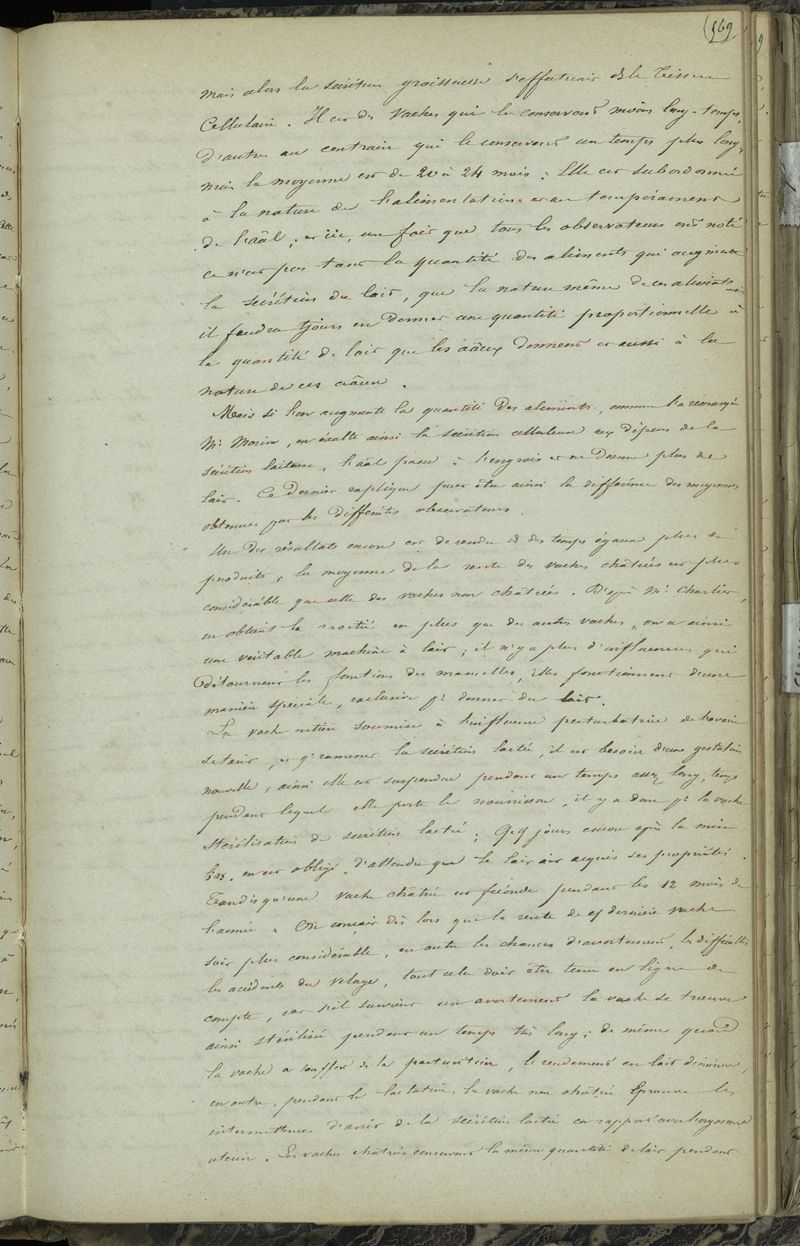 169
mais alors la sécrétion graisseuse s'effectuait ds le tissu
Cellulaire. Il est des vaches qui le conservent moins long-temps,
d'autres au contraire qui le conservent un temps plus long,
mais la moyenne est de 20 à 24 mois. Elle est subordonnée
à la nature de l'alimentation et au tempérament
de l'aâl; et ici, un fait que tous les observateurs ont noté
ce n'est pas tant la quantité des aliments qui augmente
la sécrétion du lait, que la nature même de ces aliments
il faudra tjours en donner une quantité proportionnelle à
la quantité de lait que les aâux donnent et aussi à la
nature de ces aâux.
Mais si l'on augmente la quantité des aliments, comme l'a remarqué
Mr Morin, on exalte ainsi la sécrétion cellulaire aux dépens de la
sécrétion laiteuse, l'aâl passe à l'engrais et ne donne plus de
lait. Ce dernier explique peut être ainsi la différence des moyennes
obtenues par les différents observateurs.
Un des résultats encore est de rendre ds des temps égaux plus de
produits, la moyenne de la rente des vaches châtrées est plus
considérable que celle des vaches non châtrées. D'après Mr Charlier,
on obtient la moitié en plus que des autres vaches, on a ainsi
une véritable machine à lait; il n'y a plus d'influences qui
détournent les fonctions des mamelles, elles fonctionnent d'une
manière spéciale, exclusive pr donner du lait.
La vache entière soumise à l'influence perturbatrice de l'ovaire
se tarit, et pr ramener la sécrétion lactée, il est besoin d'une gestation
nouvelle; ainsi elle est suspendue pendant un temps assez long, temps
pendant lequel elle porte le nourrisson, il y a donc pr la vache
stérilisation de sécrétion lactée; qq jours encore après la mise
bas, on est obligé d'attendre que le lait ait acquis ses propriétés.
Tandis qu'une vache châtrée est féconde pendant les 12 mois de
l'année. On conçoit dès lors que la rente de cette dernière vache
soit plus considérable, en outre les chances d'avortement, les difficultés
les accidents du vêlage, tout cela doit être tenu en ligne de
compte, car s'il survient un avortement la vache se trouve
ainsi stérilisée pendant un temps très long; de même quand
la vache a souffert de la parturition, le rendement en lait diminue,
en outre, pendant la lactation, la vache non châtrée éprouve les
intermittences d'arrêt de la sécrétion lactée en rapport avec l'orgasme
utérin. Les vaches châtrées conservent la même quantité de lait pendant